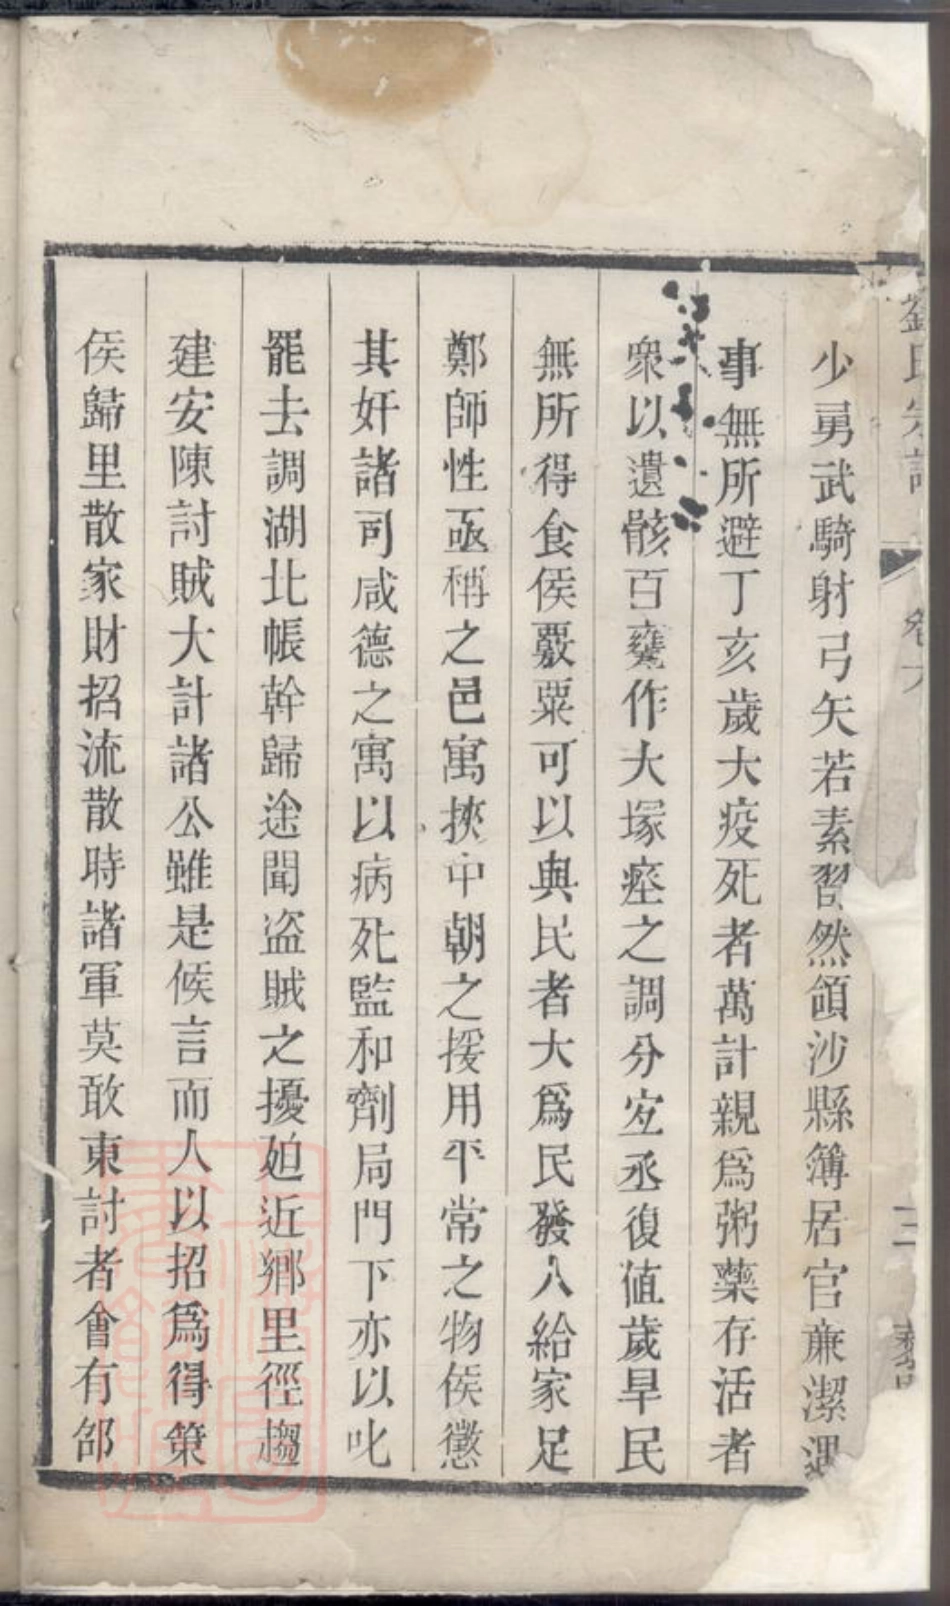 少勇武騎射弓矢若素習然領沙縣簿居官亷潔遇
事無所避丁亥歲大疫死者萬計親爲粥藥存活者
衆以遺骸百甕作大塚瘞之調分宐丞復值歲旱民
無所得食侯覈粟可以與民者大爲民發入給家足
鄭師性亟稱之邑寓挾中朝之援用平常之物侯懲
其奸諸司咸德之寓以病死監和劑局門下亦以叱
罷去調湖北帳幹歸途聞盗賊之擾廹近鄉里徑趨
建安陳討賊大計諸公雖是候言而人以招爲得策
侯歸里散家財招流散時諸軍莫敢東討者會有部
氏宗譜
卷六
三